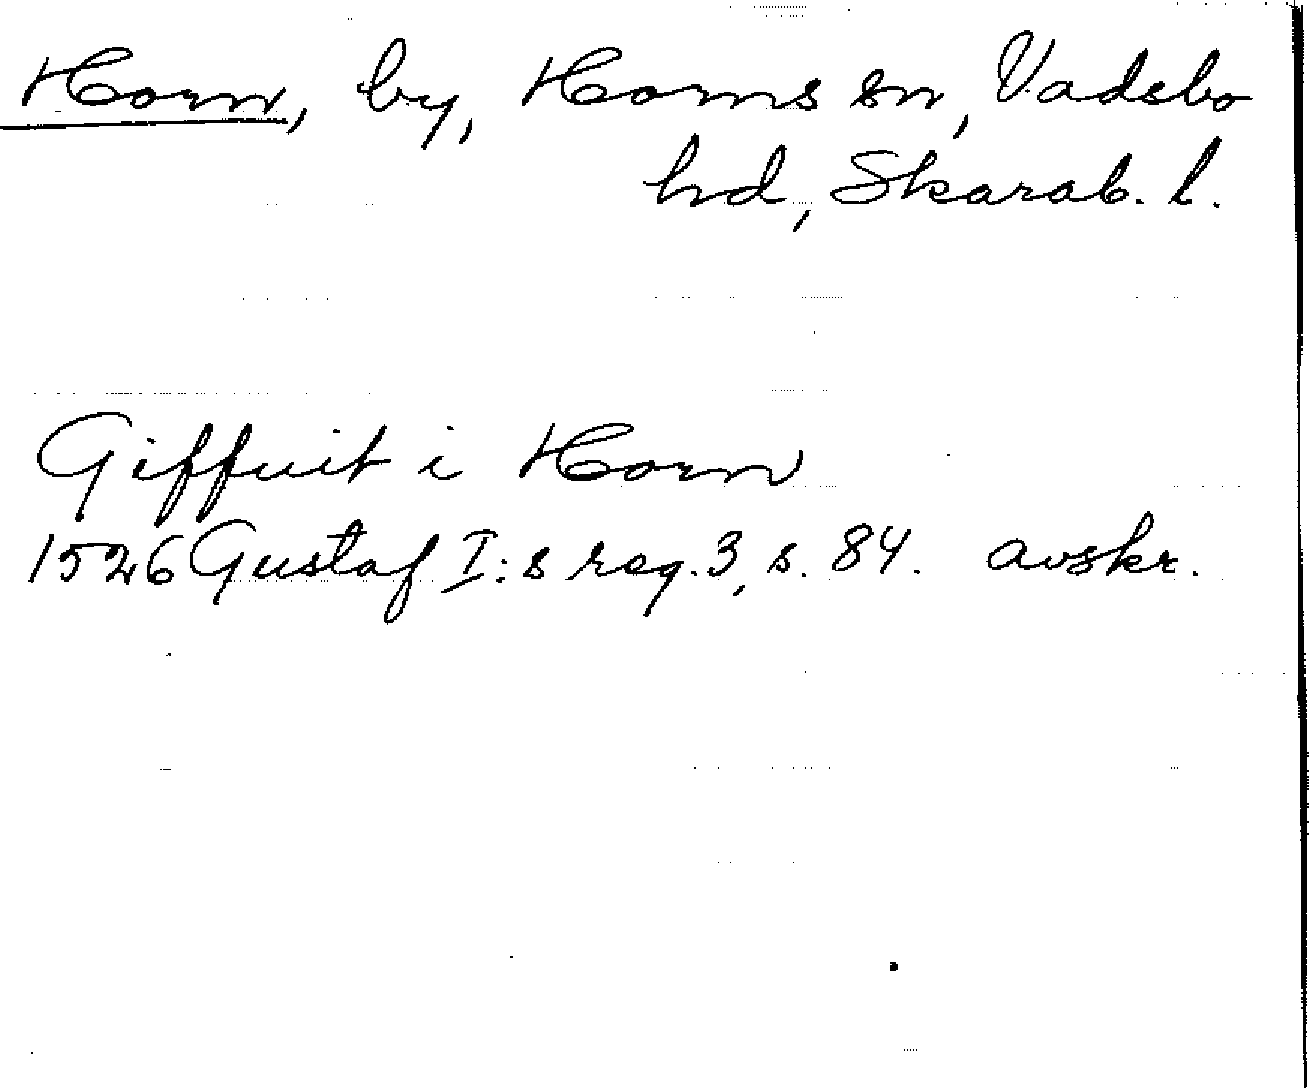 Horn, by, Horns sn, Vadsbo
hd, Skarab. l.
Giffuit i Horn
1526 Gustaf I:s reg. 3, s. 84. avskr.